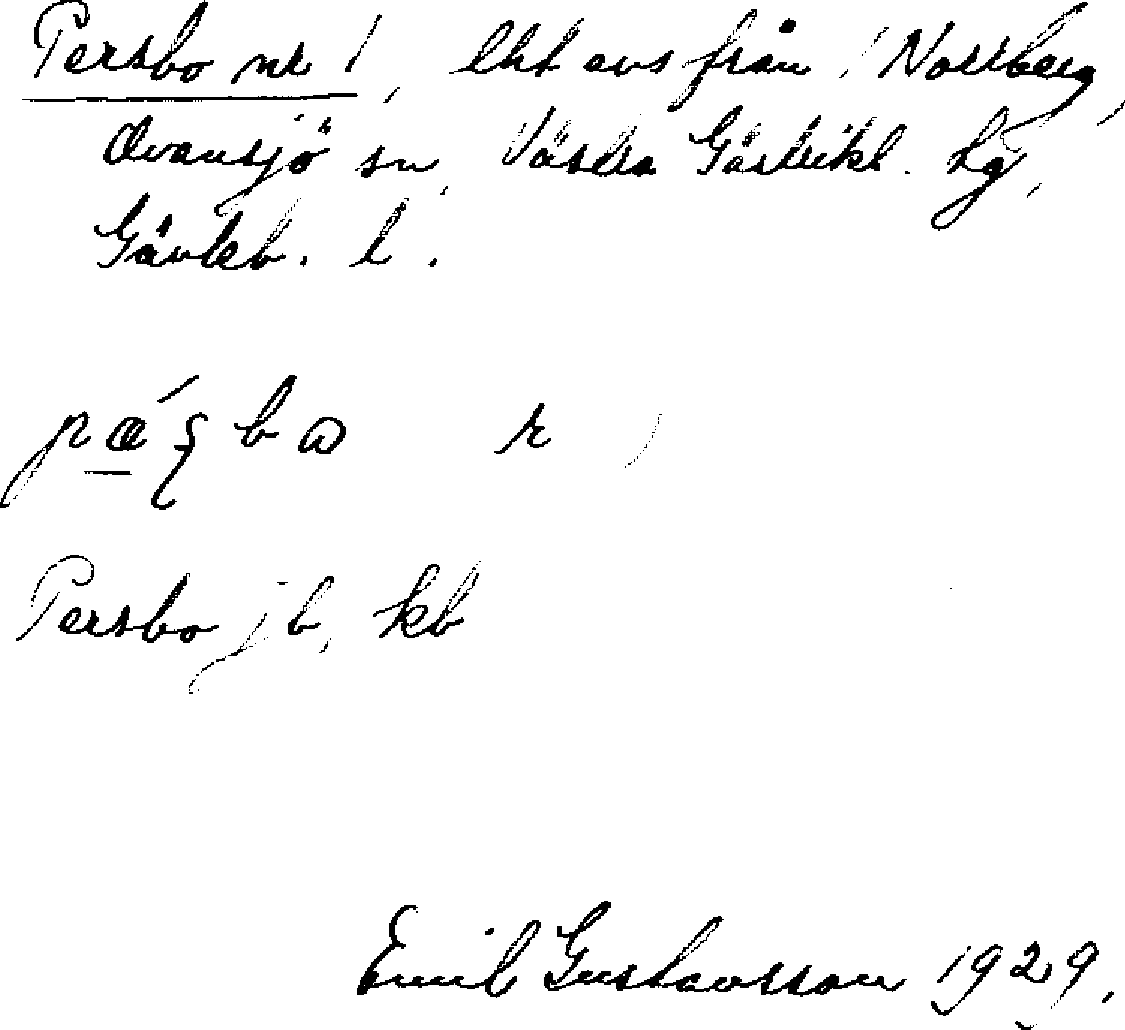 Persbo nr 1, lht avs från 1 Norrberg,
Ovansjö sn, Västra Gästrikl. hg,
Gävleb. l.
pǽʂbɷ r
Persbo jb, kb
Emil Gustavsson 1929.